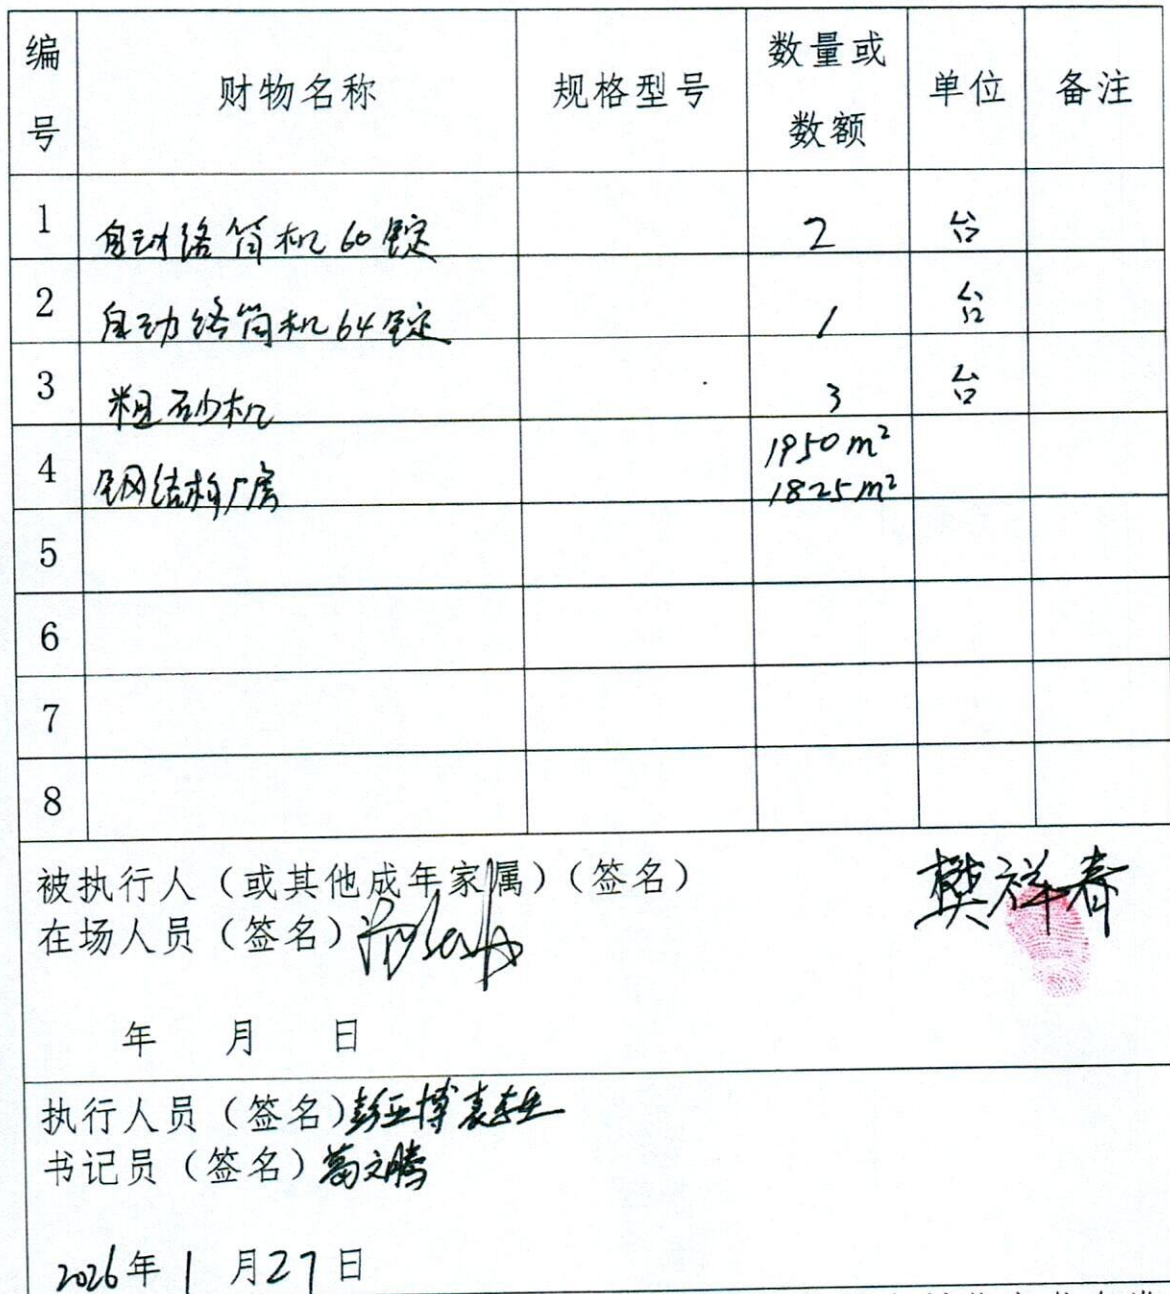 编号 财物名称 规格型号 数量或数额 单位 备注
1 自动络筒机60锭 2 台
2 自动络筒机64锭 1 台
3 粗砂机 3 台
4 钢结构厂房 1950m² 1825m²
5
6
7
8
被执行人（或其他成年家属）（签名） 樊祥春
在场人员（签名）
年 月 日
执行人员（签名）彭亚博
书记员（签名）葛文腾
2026年1月27日